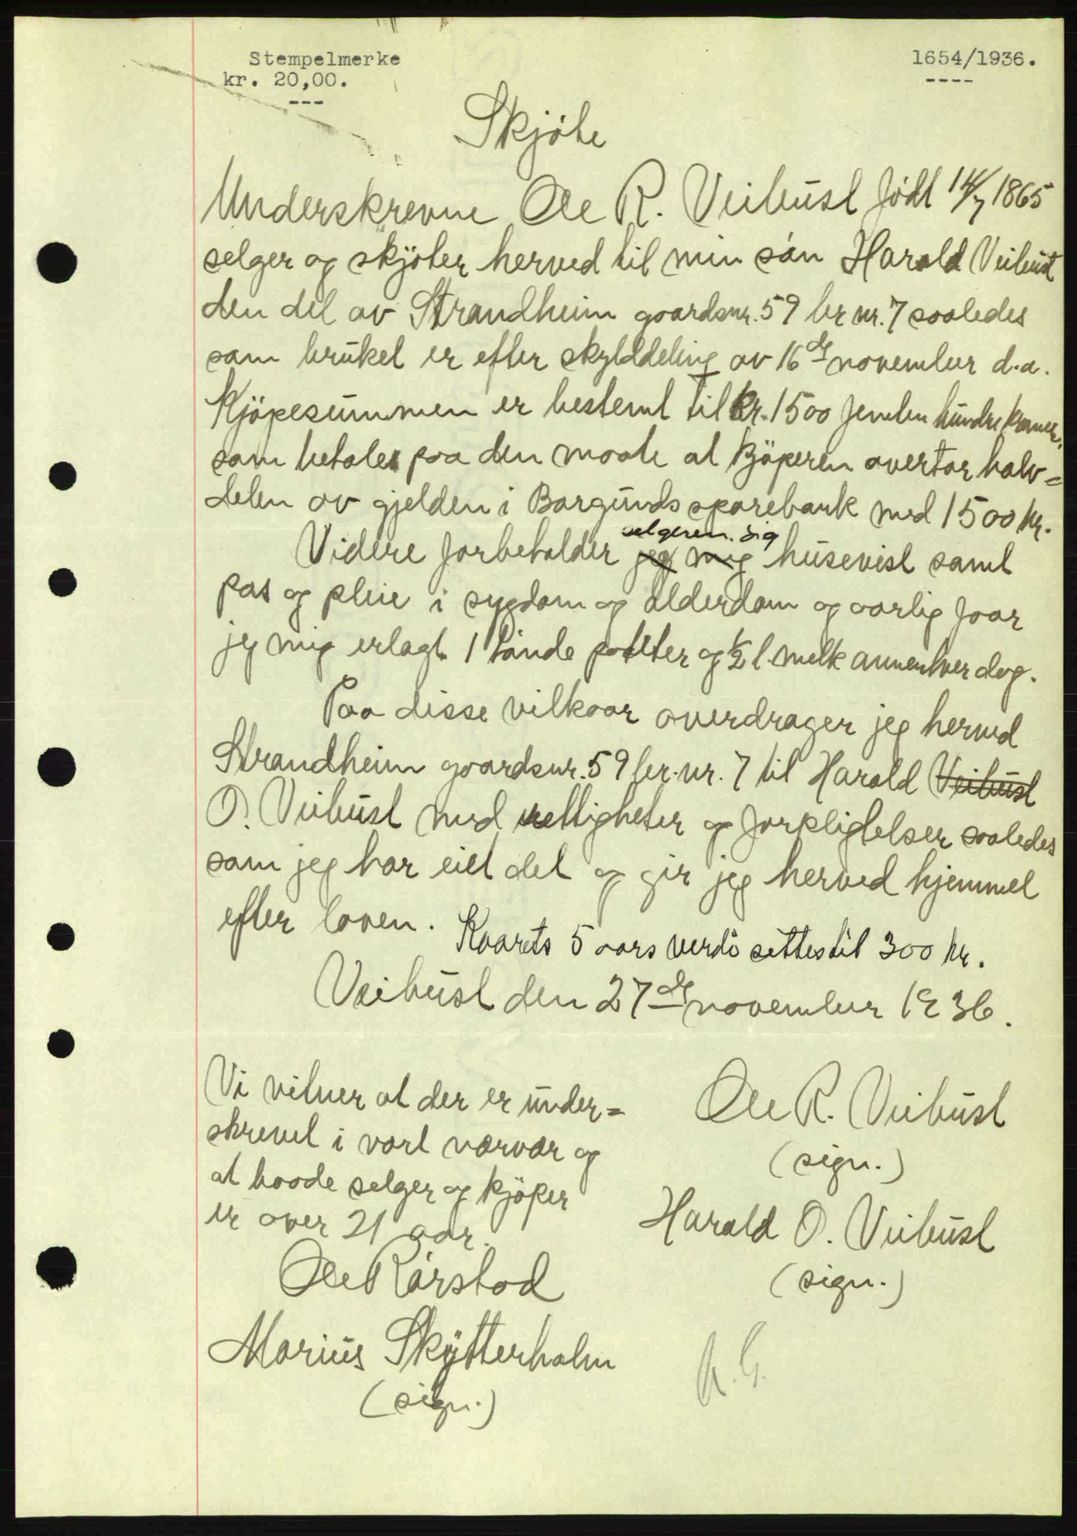 Stempelmerke
kr. 20,00.
---
1654/1936.
----
Skjöte
Underskrevne Ole R. Veibust född 14/7 1865
selger og skjöter herved til min sön Harald Veibust
den del av Strandheim gaardsnr. 59 br nr. 7 saaledes
som bruket er efter skylddeling av 16de november d.a.
Kjöpesummen er bestemt til kr. 1500 femten hundre kroner,
som betales paa den maate at kjöperen overtar halv=
delen av gjelden i Borgunds sparebank med 1500 kr.
Videre forbeholder jeg mig selgeren sig husevist samt
pas og pleie i sygdom og alderdom og aarlig faar
jeg mig erlagt 1 tönde poteter og 1/2 l. melk annenhver dag.
Paa disse vilkaar overdrager jeg herved
Strandheim gaardsnr. 59 br. nr. 7 til Harald Veibust
O. Veibust med rettigheter og forpligtelser saaledes
som jeg har eiet det og gir jeg herved hjemmel
efter loven. Kaarets 5 aars verdi settes til 300 kr.
Veibust den 27de november 1936.
Vi vitner at der er under=
skrevet i vort nærvær og
at baade selger og kjöper
er over 21 aar.
Ole Rörstad
Marius Skytterholm
(sign.)
Ole R. Veibust
(sign.)
Harald O. Veibust
(sign.)